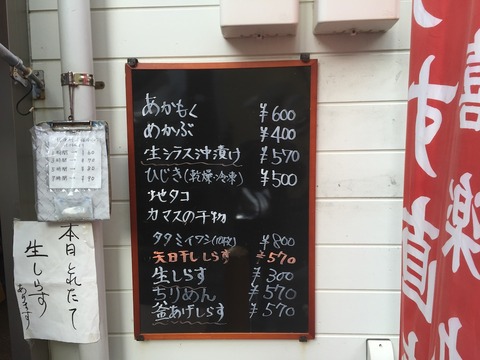 あかもく ¥600
めかぶ ¥400
生シラス沖漬け ¥570
ひじき(乾燥・冷凍) ¥500
地タコ
カマスの干物
タタミイワシ(10枚) ¥800
天日干ししらす ¥570
生しらす ¥300
ちりめん ¥570
釜あげしらす ¥570
本日とれたて
生しらす
あります